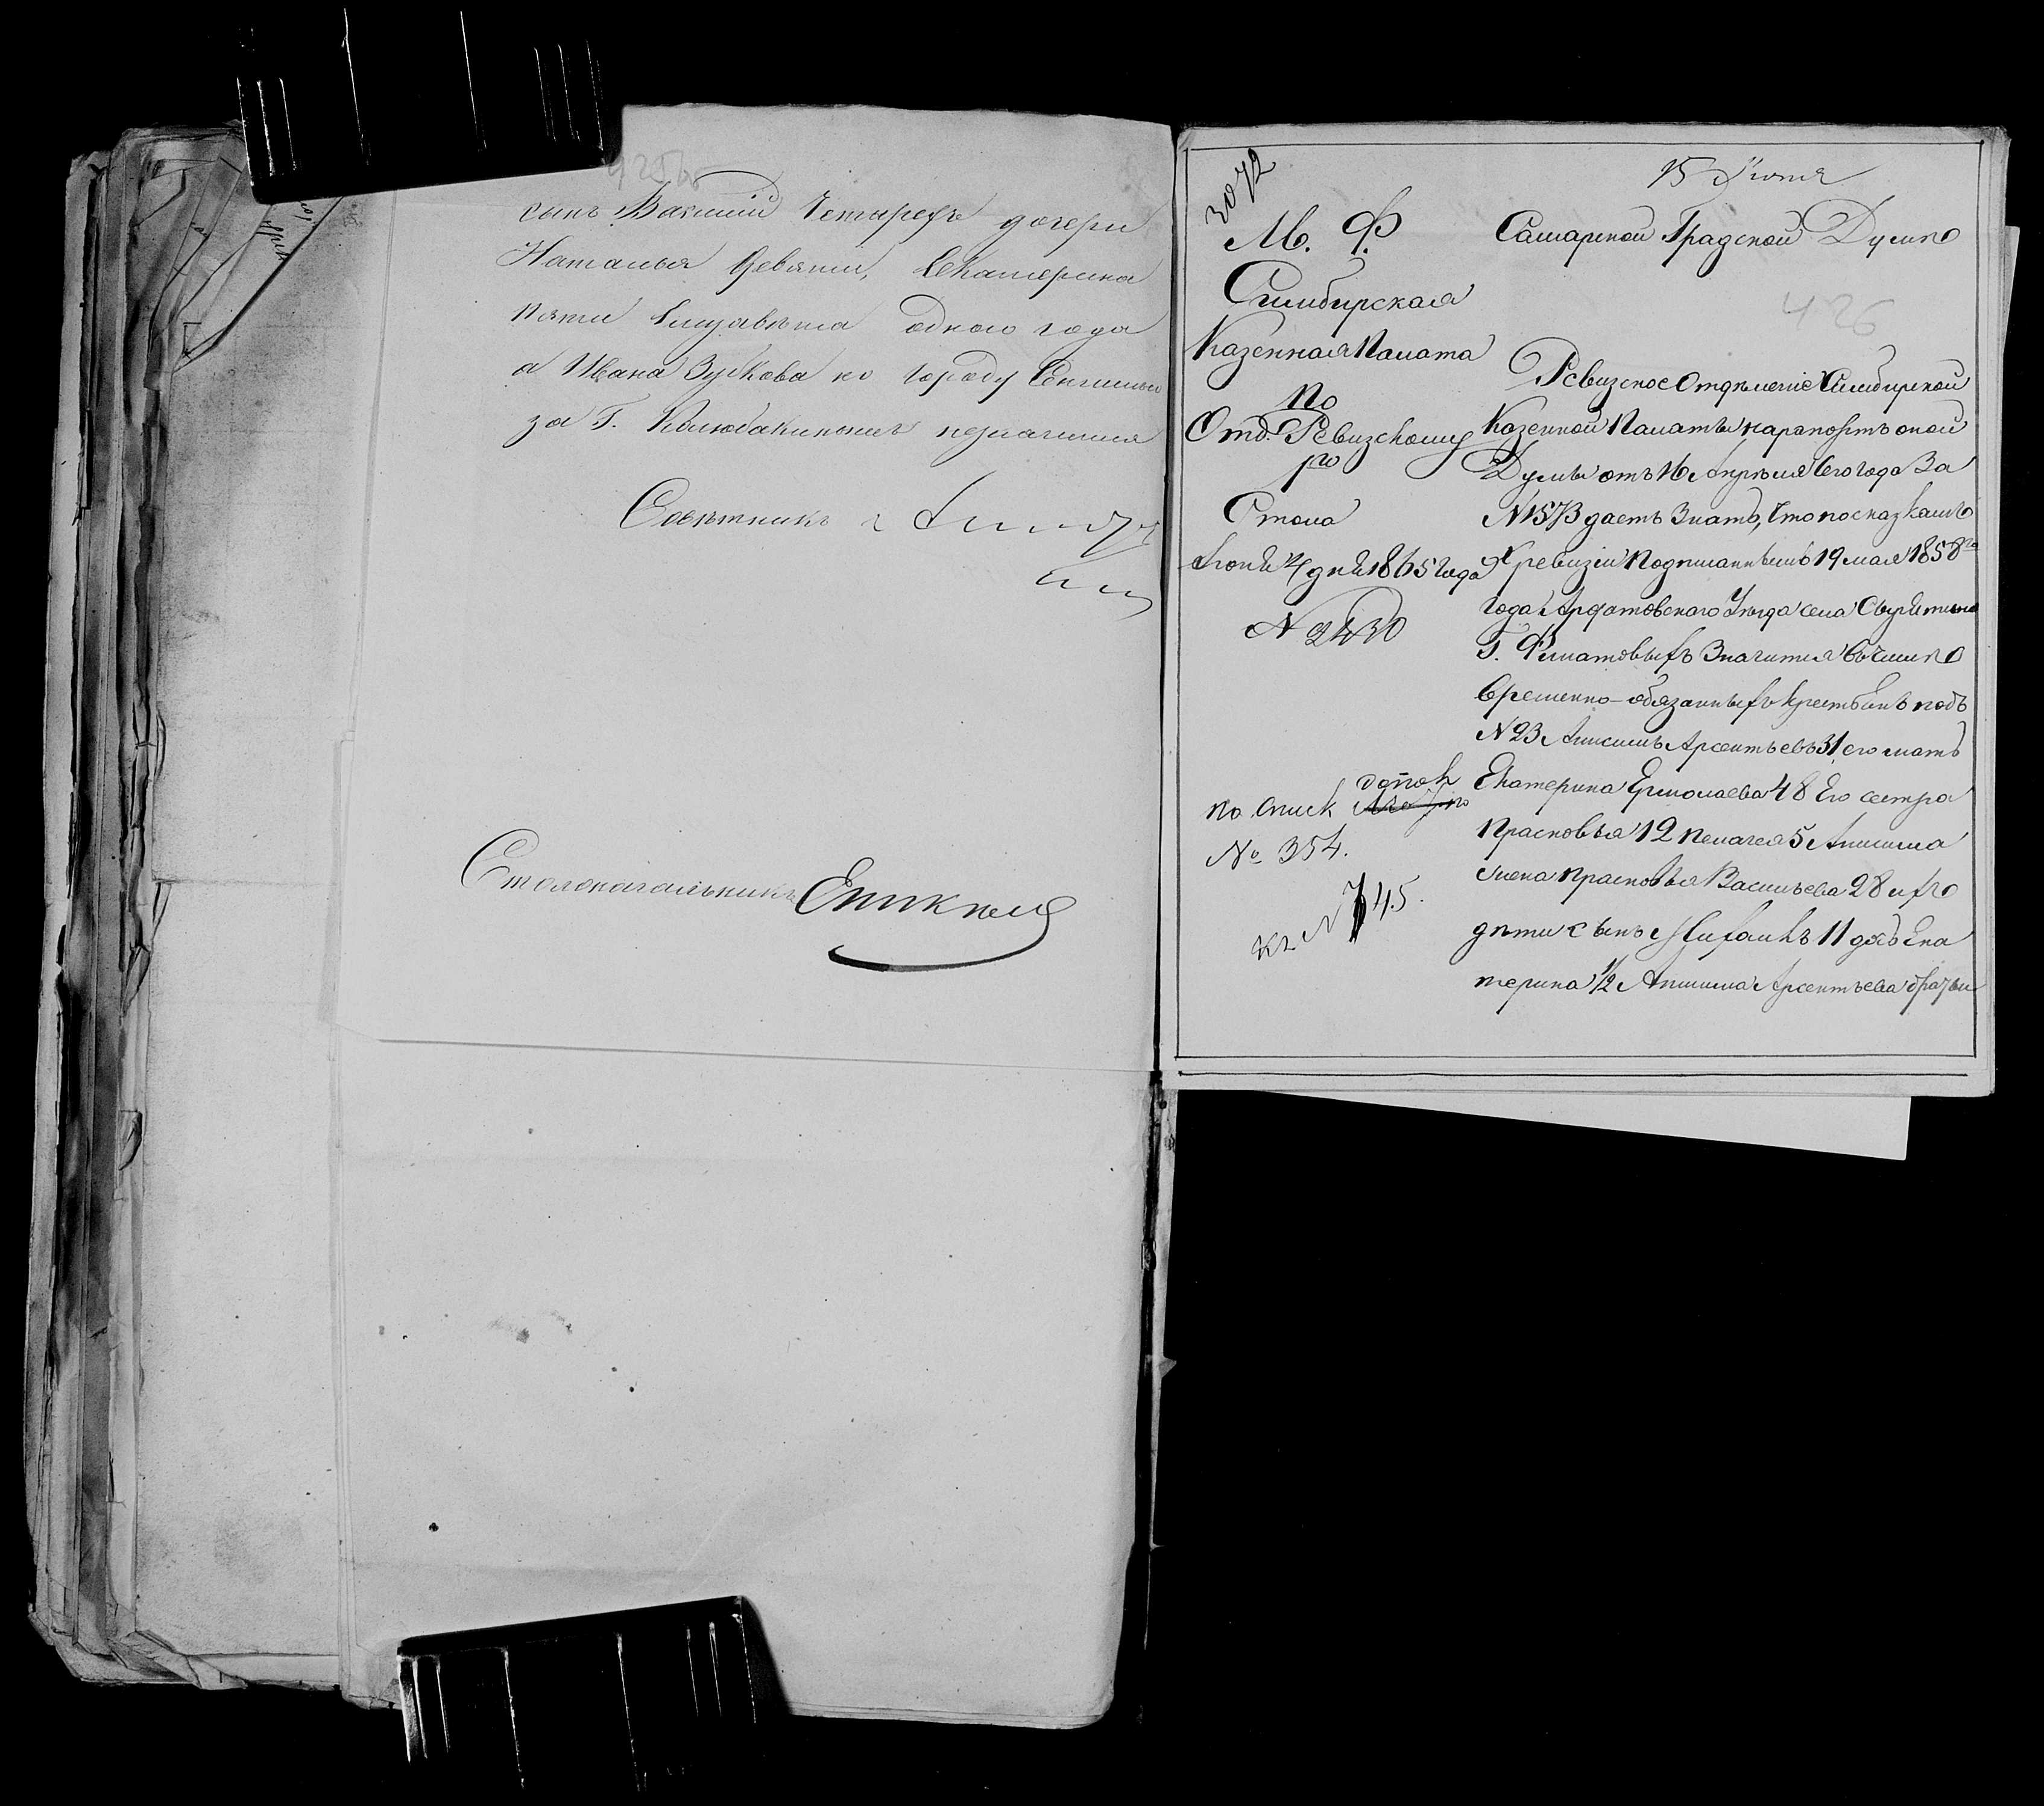 425об
сынъ Василій четырехъ дочери
Наталья девяти, Екатерина
пяти Елизавѣта одного года
а Ивана Зубкова по городу
за Г. незначится
Совѣтникъ
Столоначальникъ
3072
М. Ф.
Симбирская
Казенная Палата
По
Отд. Ревизскому
1го
Стола
Іюня 4 дня 1865 года
N 2430
по списк допол
№ 354.
къ N 745.
15 Іюня
Самарской Градской Думѣ
426
Ревизское Отдѣленіе Симбирской
Казенной Палаты на рапортъ оной
Думы отъ 16 Апрѣля сего года за
N 1573 даетъ знать, что по сказкамъ
X ревизіи подписаннымъ 19 мая 1858го
года Ардатовскаго Уѣзда села
Г. Филатовыхъ значится въ числѣ
временно-обязанныхъ крестьянъ подъ
N 23 Анисимъ Арсентьевъ 31, его мать
Екатерина Ермолаева 48 Его сестра
Прасковья 12 Пелагея 5 Анисима
жена Прасковья Васильева 28 ихъ
дѣти сынъ Михаилъ 11 дочь Ека
терина 1/2 Анисима Арсентьева братья